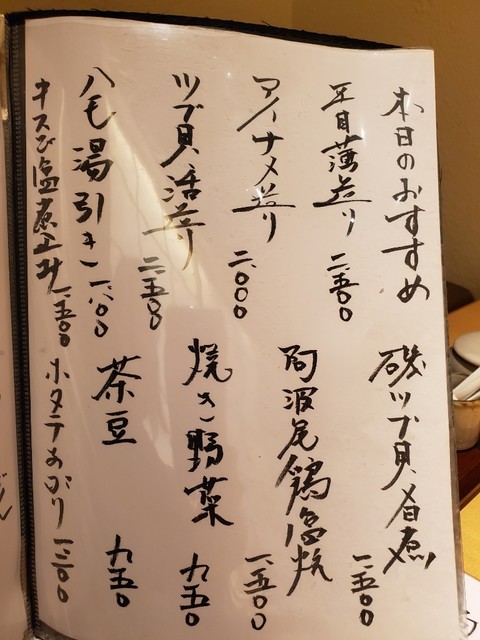 本日のおすすめ
平目薄造り 二、五〇〇
アイナメ造り 二、〇〇〇
ツブ貝活造り 二、五〇〇
ハモ湯引き 一、八〇〇
一、五〇〇
磯ツブ貝旨煮 一、五〇〇
阿波尾鶏塩焼 一、五〇〇
焼き野菜 九五〇
茶豆 九五〇
ホタテ 一、三〇〇